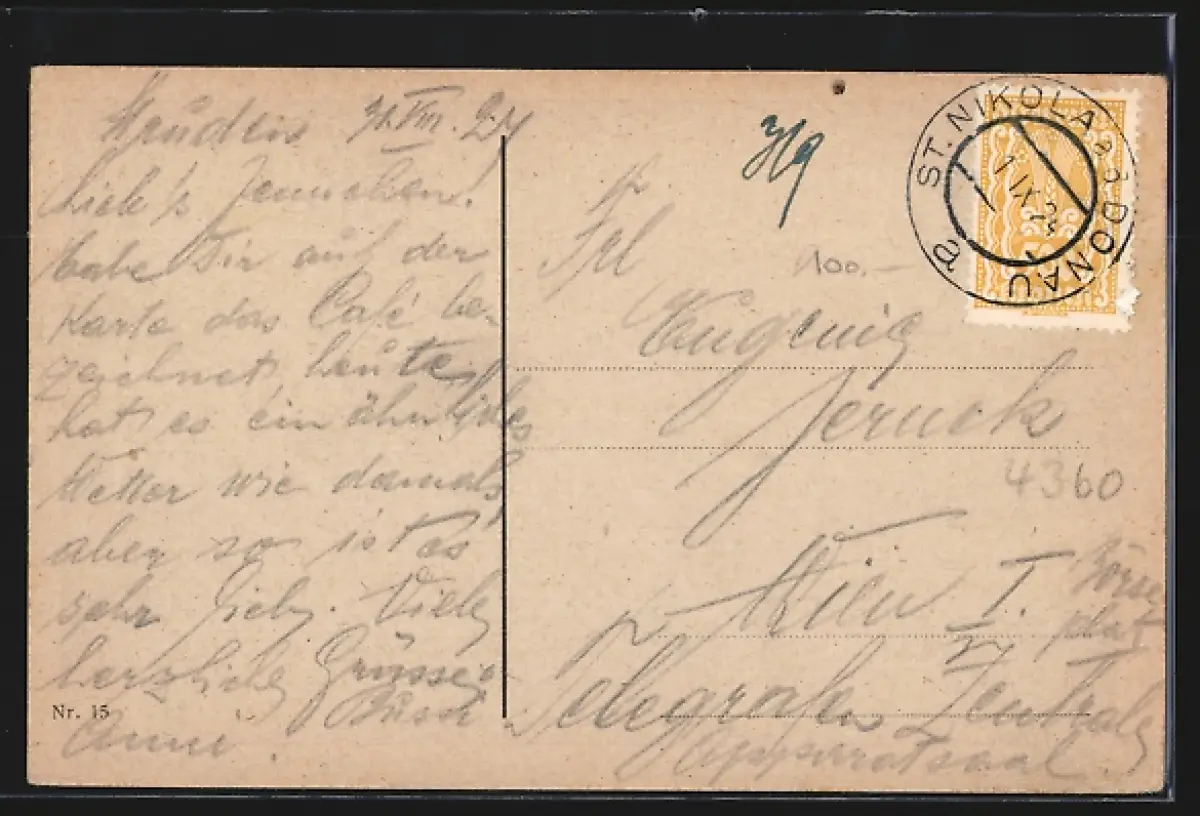 Lieb's Jennchen!
Habe Dir auf der
Karte das Café be-
zeichnet, heute
hat es ein ähnliches
Wetter wie damals,
aber so ist es
sehr lieb. Viele
herzliche Grüsse
Bussi
Nr. 15
Anni.
ST. NIKOLA a. d. DONAU
a
100.-
Frl
Eugenie
Jernek
4360
Wien I. Börse
platz
Telegrafen Zentrale
Apparatsaal.